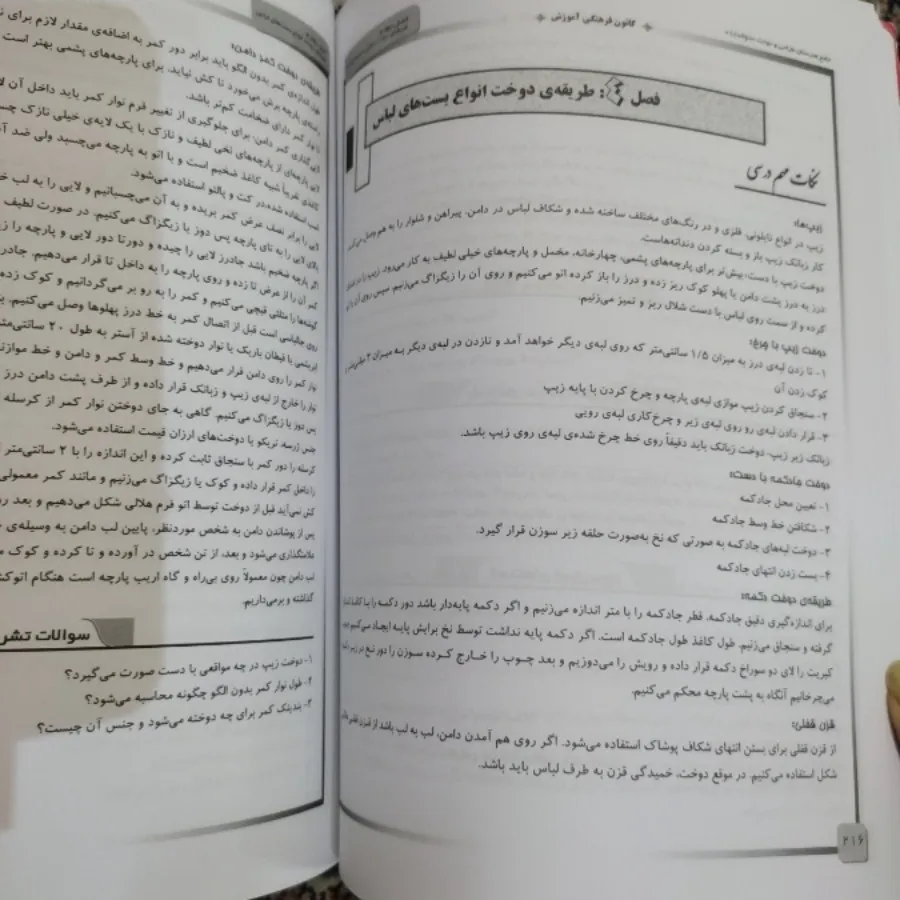 کانون فرهنگی آموزش
فصل ۴: طریقه‌ی دوخت انواع بست‌های لباس
نکات مهم درسی
زیپ‌ها:
زیپ در انواع نایلونی، فلزی و در رنگ‌های مختلف ساخته شده و شکاف لباس در دامن، پیراهن و شلوار را به هم وصل می‌کند.
کار زبانک زیپ باز و بسته کردن دندانه‌هاست.
دوخت زیپ با دست، بیش‌تر برای پارچه‌های پشمی، چهارخانه، مخمل و پارچه‌های خیلی لطیف به کار می‌رود. زیپ را
درز به درز پشت دامن یا پهلو کوک ریز زده و درز را باز کرده اتو می‌کنیم و روی آن را زیگزاگ می‌زنیم. سپس روی آن
کرده و از سمت روی لباس با دست شلال ریز و تمیز می‌زنیم.
دوخت زیپ با چرخ:
۱- تا زدن لبه‌ی درز به میزان ۱/۵ سانتی‌متر که روی لبه‌ی دیگر خواهد آمد و تازدن در لبه‌ی دیگر به میزان ۲
کوک زدن آن
۲- سنجاق کردن زیپ موازی لبه‌ی پارچه و چرخ کردن با پایه زیپ
۳- قرار دادن لبه‌ی رو روی لبه‌ی زیر و چرخ‌کاری لبه‌ی رویی
زبانک زیر زیپ، دوخت زبانک باید دقیقاً روی خط چرخ شده‌ی لبه‌ی روی زیپ باشد.
دوخت جادکمه با دست:
۱- تعیین محل جادکمه
۲- شکافتن خط وسط جادکمه
۳- دوخت لبه‌های جادکمه به صورتی که نخ به‌صورت حلقه زیر سوزن قرار گیرد.
۴- بست زدن انتهای جادکمه
طریقه‌ی دوخت دکمه:
برای اندازه‌گیری دقیق جادکمه، قطر جادکمه را با متر اندازه می‌زنیم و اگر دکمه پایه‌دار باشد دور دکمه را با کاغذ
گرفته و سنجاق می‌زنیم. طول کاغذ طول جادکمه است. اگر دکمه پایه نداشت توسط نخ برایش پایه ایجاد می‌کنیم
کبریت را لای دو سوراخ دکمه قرار داده و رویش را می‌دوزیم و بعد چوب را خارج کرده سوزن را دور نخ در زیر
می‌چرخانیم آنگاه به پشت پارچه محکم می‌کنیم.
قزن قفلی:
از قزن قفلی برای بستن انتهای شکاف پوشاک استفاده می‌شود. اگر روی هم آمدن دامن، لب به لب باشد از قزن
شکل استفاده می‌کنیم. در موقع دوخت، خمیدگی قزن به طرف لباس باید باشد.
۲۱۶
طریقه‌ی دوخت کمر دامن:
اندازه‌ی کمر بدون الگو باید برابر دور کمر به اضافه‌ی مقدار لازم برای
پارچه برش می‌خورد تا کش نیاید. برای پارچه‌های پشمی بهتر است
نوار کمر دارای ضخامت کم‌تر باشد.
لایی‌گذاری کمر دامن: برای جلوگیری از تغییر فرم نوار کمر باید داخل آن
لایی پارچه‌ای از پارچه‌های نخی لطیف و نازک با یک لایه‌ی خیلی نازک
کاغذی تقریباً شبیه کاغذ ضخیم است و با اتو به پارچه می‌چسبد ولی ضد
استفاده شده،در کت و پالتو استفاده می‌شود.
لایی را برابر نصف عرض کمر بریده و به آن می‌چسبانیم و لایی را به لب
بالای لایی را به تای پارچه پس دوز یا زیگزاگ می‌کنیم. در صورت لطیف
اگر پارچه ضخیم باشد جادرز لایی را چیده و دورتا دور لایی و پارچه را
کمر آن را از عرض تا زده و روی پارچه را به داخل تا قرار می‌دهیم.
گوشه‌ها را مثلثی قیچی می‌کنیم و کمر را به رو بر می‌گردانیم و کوک زده
روی جالباسی است قبل از اتصال کمر به خط درز پهلوها وصل می‌کنیم.
ابریشمی یا قیطان باریک یا نوار دوخته شده از آستر به طول ۲۰
نوار کمر را روی دامن قرار می‌دهیم و خط وسط کمر و دامن و خط
نوار را خارج از لبه‌ی زیپ و زبانک قرار داده و از طرف پشت دامن درز
پس دوز یا زیگزاگ می‌کنیم. گاهی به جای دوختن نوار کمر از کرسله
جنس زرسه تریکو یا دوخت‌های ارزان قیمت استفاده می‌شود.
کرسله را دور کمر با سنجاق ثابت کرده و این اندازه را با ۲ سانتی‌متر
را داخل کمر قرار داده و کوک یا زیگزاگ می‌زنیم و مانند کمر معمولی
کش نمی‌آید قبل از دوخت توسط اتو فرم هلالی شکل می‌دهیم و بعد
پس از پوشاندن دامن به شخص موردنظر، پایین لب دامن به وسیله‌ی
علامتگذاری می‌شود و بعد، از تن شخص در آورده و تا کرده و کوک
لب دامن چون معمولاً روی بی‌راه و گاه اریب پارچه است هنگام
گذاشته و برمی‌داریم.
سوالات
۱- دوخت زیپ در چه مواقعی با دست صورت می‌گیرد؟
۲- طول نوار کمر بدون الگو چگونه محاسبه می‌شود؟
۳- بندینک کمر برای چه دوخته می‌شود و جنس آن چیست؟